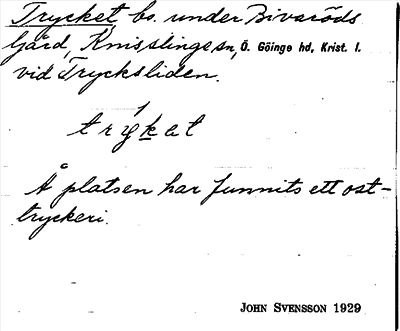 Trycket bs. under Bivaröds
Gård, Knisslinge sn, Ö. Göinge hd, Krist. l.
vid Trycksliden.
trýkat
Å platsen har funnits ett ost-
tryckeri.
JOHN SVENSSON 1929